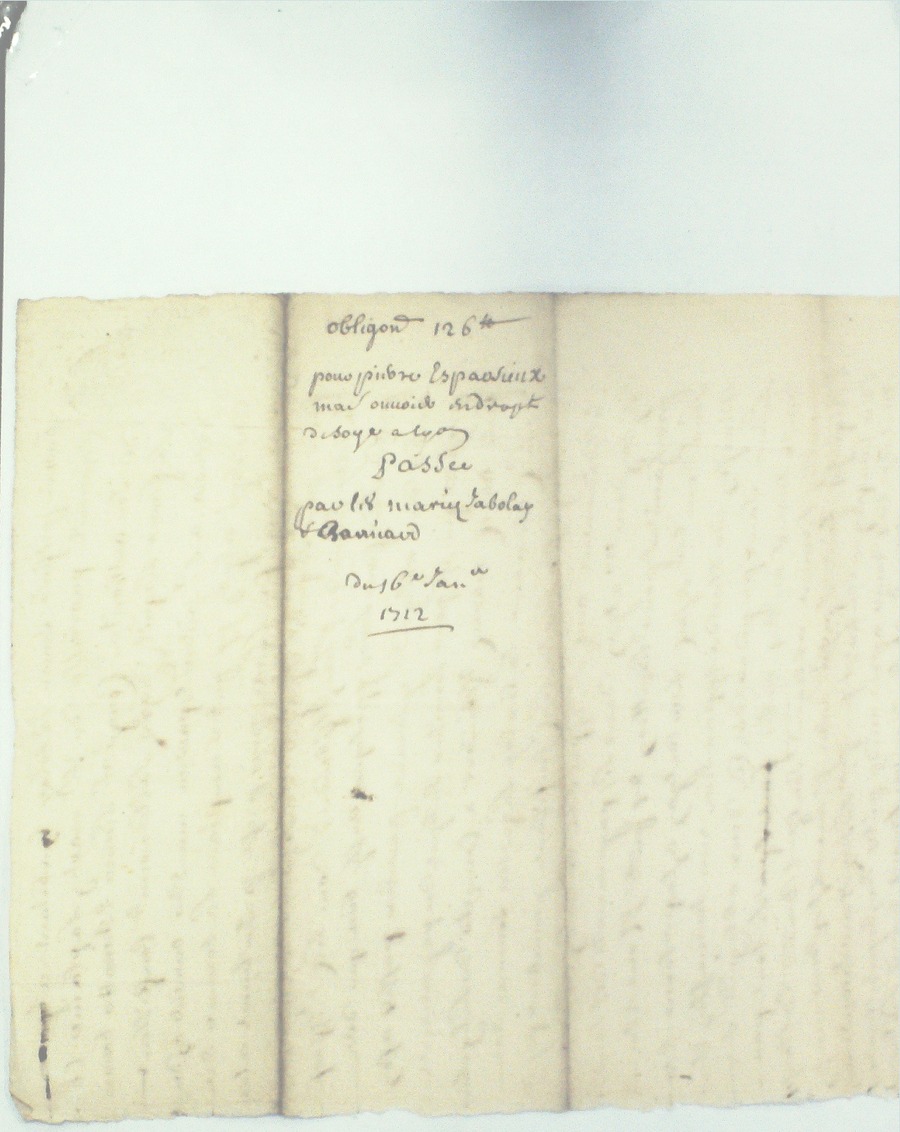 obligon 126 tt
pour pierre Esparsieux
mai ouuoier en drapt
de soye a lyon
Passée
par les mariez Jabolay
& Baricand
du 16e Janer
1712